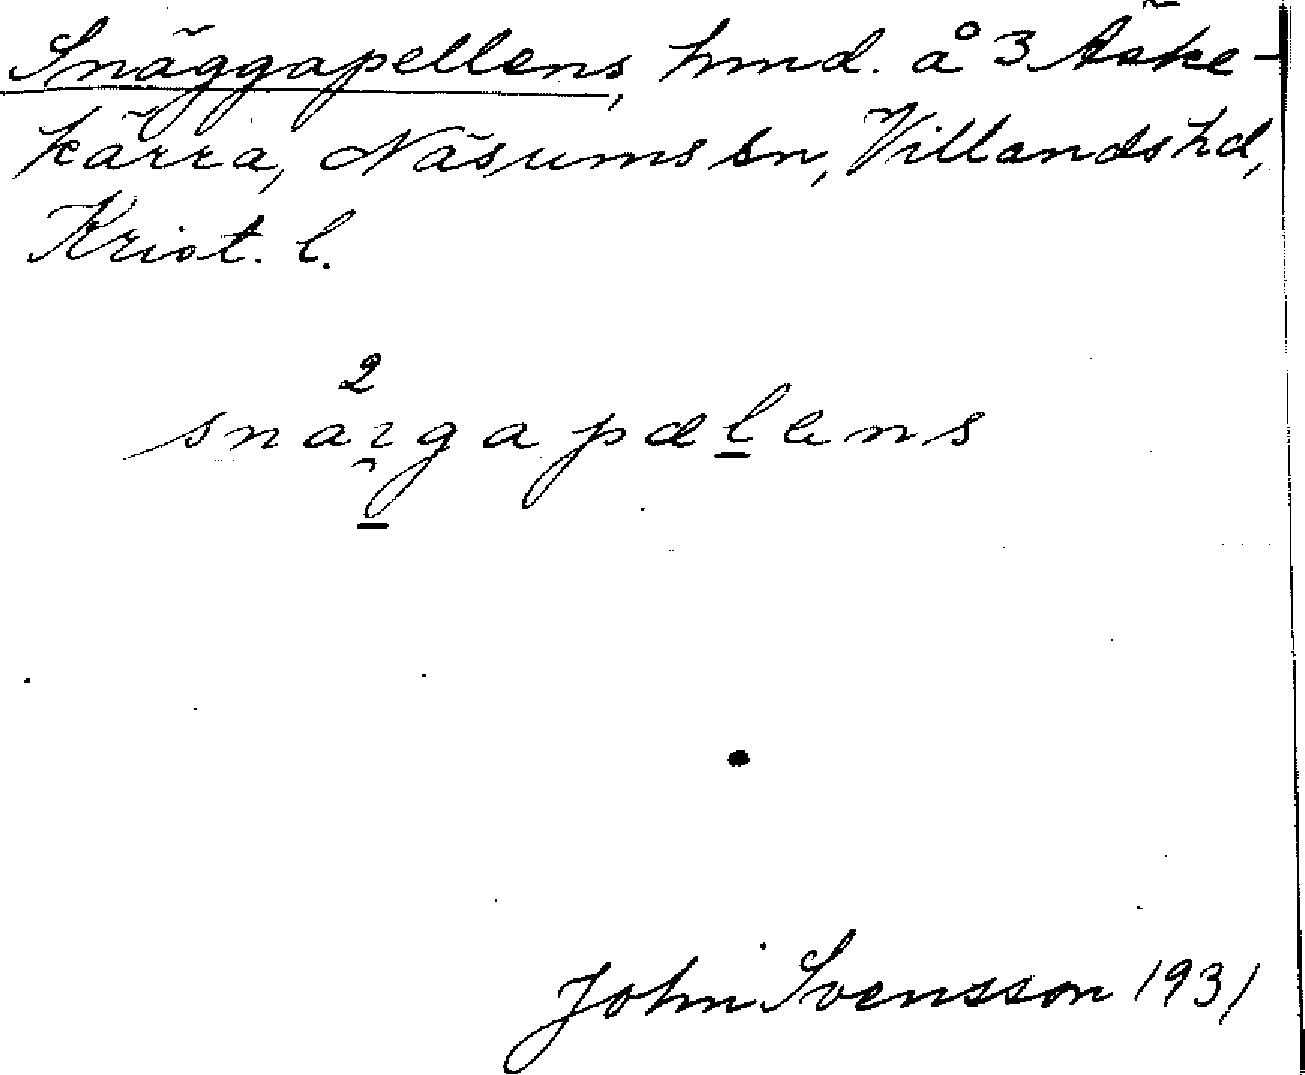 Snäggapellens, hmd. å 3 Äske-
kärra, Näsums sn, Villands hd,
Krist. l.
2
John Svensson 1931